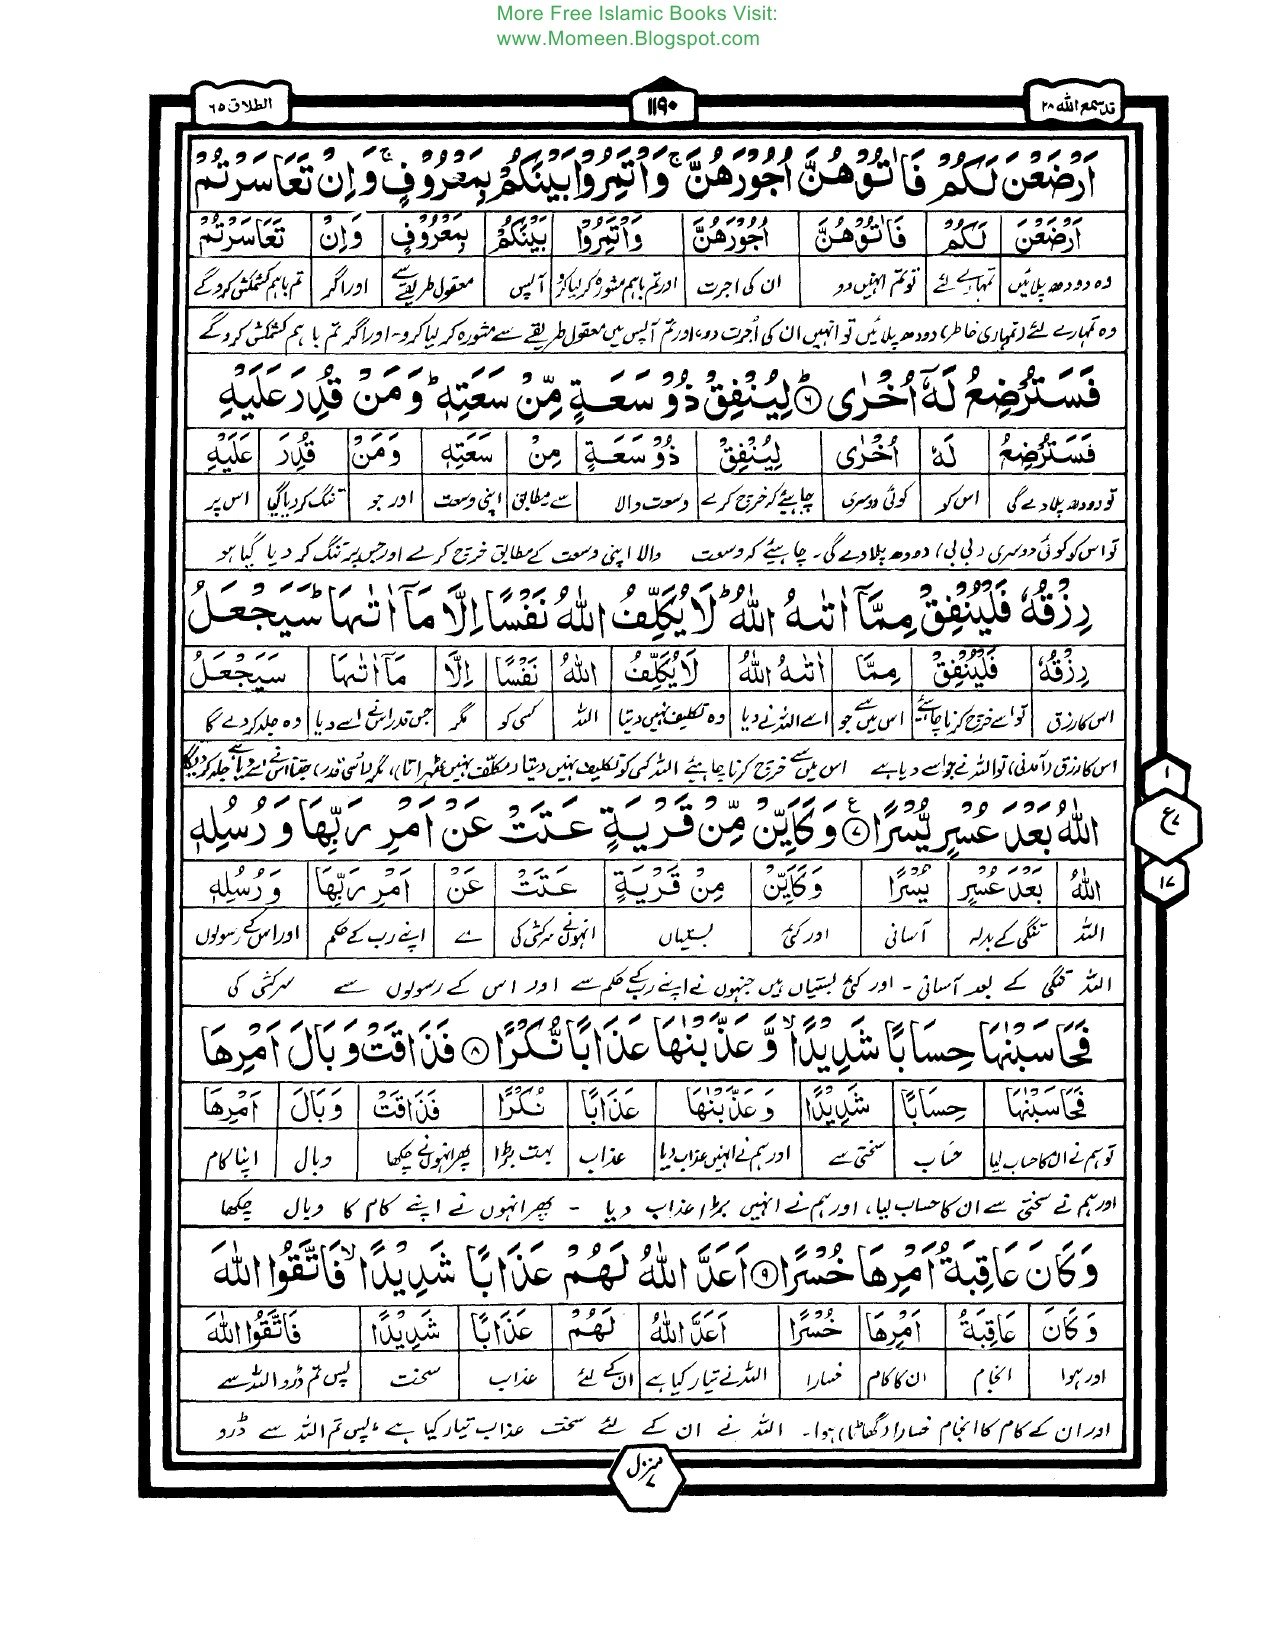 More Free Islamic Books Visit:
www.Momeen.Blogspot.com
قد سمع الله ٢٨ ١١٩٠ الطلاق ٦٥
اَرْضَعْنَ لَكُمْ فَاٰتُوْهُنَّ اُجُوْرَهُنَّ ۚ وَاْتَمِرُوْا بَيْنَكُمْ بِمَعْرُوْفٍ ۚ وَاِنْ تَعَاسَرْتُمْ
اَرْضَعْنَ لَكُمْ فَاٰتُوْهُنَّ اُجُوْرَهُنَّ وَاْتَمِرُوْا بَيْنَكُمْ بِمَعْرُوْفٍ وَاِنْ تَعَاسَرْتُمْ
وہ دودھ پلائیں تمہارے لئے تو تم انہیں دو ان کی اجرت اور تم باہم مشورہ کر لیا کرو آپس معقول طریقے سے اور اگر تم باہم کشمکش کرو گے
وہ تمہارے لئے (تمہاری خاطر) دودھ پلائیں تو انہیں ان کی اُجرت دو، اور تم آپس میں معقول طریقے سے مشورہ کر لیا کرو۔ اور اگر تم باہم کشمکش کرو گے
فَسَتُرْضِعُ لَهٗۤ اُخْرٰى ۶ لِيُنْفِقْ ذُوْ سَعَةٍ مِّنْ سَعَتِهٖ ؕ وَمَنْ قُدِرَ عَلَيْهِ
فَسَتُرْضِعُ لَهٗ اُخْرٰى لِيُنْفِقْ ذُوْ سَعَةٍ مِنْ سَعَتِهٖ وَمَنْ قُدِرَ عَلَيْهِ
تو دودھ پلا دے گی اس کو کوئی دوسری چاہیئے کہ خرچ کرے وسعت والا سے مطابق اپنی وسعت اور جو تنگ کر دیا گیا اس پر
تو اس کو کوئی دوسری (بی بی) دودھ پلا دے گی۔ چاہیئے کہ وسعت والا اپنی وسعت کے مطابق خرچ کرے اور جس پر تنگ کر دیا گیا ہو
رِزْقُهٗ فَلْيُنْفِقْ مِمَّاۤ اٰتٰىهُ اللّٰهُ ؕ لَا يُكَلِّفُ اللّٰهُ نَفْسًا اِلَّا مَاۤ اٰتٰىهَا ؕ سَيَجْعَلُ
رِزْقُهٗ فَلْيُنْفِقْ مِمَّا اٰتٰىهُ اللّٰهُ لَا يُكَلِّفُ اللّٰهُ نَفْسًا اِلَّا مَاۤ اٰتٰىهَا سَيَجْعَلُ
اس کا رزق تو اسے خرچ کرنا چاہیئے اس میں سے جو اسے اللہ نے دیا وہ تکلیف نہیں دیتا اللہ کسی کو مگر جس قدر اس نے اسے دیا وہ جلد کر دے گا
اس کا رزق (آمدنی) تو اللہ نے جو اسے دیا ہے اس میں سے خرچ کرنا چاہیئے اللہ کسی کو تکلیف نہیں دیتا (مکلف نہیں ٹھہراتا)، مگر (اسی قدر) جتنا اس نے اسے دیا ہے جلد کر دیگا
اللّٰهُ بَعْدَ عُسْرٍ يُّسْرًا ۷ وَكَاَيِّنْ مِّنْ قَرْيَةٍ عَتَتْ عَنْ اَمْرِ رَبِّهَا وَرُسُلِهٖ
اللّٰهُ بَعْدَ عُسْرٍ يُسْرًا وَكَاَيِّنْ مِنْ قَرْيَةٍ عَتَتْ عَنْ اَمْرِ رَبِّهَا وَرُسُلِهٖ
اللہ تنگی کے بدلہ آسانی اور کئی بستیاں انہوں نے سرکشی کی سے اپنے رب کے حکم اور اس کے رسولوں
اللہ تنگی کے بعد آسانی ۔ اور کئی بستیاں ہیں جنہوں نے اپنے رب کے حکم سے اور اس کے رسولوں سے سرکشی کی
فَحَاسَبْنٰهَا حِسَابًا شَدِيْدًا ۙ وَّعَذَّبْنٰهَا عَذَابًا نُّكْرًا ۸ فَذَاقَتْ وَبَالَ اَمْرِهَا
فَحَاسَبْنٰهَا حِسَابًا شَدِيْدًا وَعَذَّبْنٰهَا عَذَابًا نُكْرًا فَذَاقَتْ وَبَالَ اَمْرِهَا
تو ہم نے ان کا حساب لیا حساب سختی سے اور ہم نے انہیں عذاب دیا عذاب بہت بڑا پھر انہوں نے چکھا وبال اپنا کام
اور ہم نے سختی سے ان کا حساب لیا، اور ہم نے انہیں بڑا عذاب دیا ۔ پھر انہوں نے اپنے کام کا وبال چکھا
وَكَانَ عَاقِبَةُ اَمْرِهَا خُسْرًا ۹ اَعَدَّ اللّٰهُ لَهُمْ عَذَابًا شَدِيْدًا ۙ فَاتَّقُوا اللّٰهَ
وَكَانَ عَاقِبَةُ اَمْرِهَا خُسْرًا اَعَدَّ اللّٰهُ لَهُمْ عَذَابًا شَدِيْدًا فَاتَّقُوا اللّٰهَ
اور ہوا انجام ان کا کام خسارا اللہ نے تیار کیا ہے ان کے لئے عذاب سخت پس تم ڈرو اللہ سے
اور ان کے کام کا انجام خسارا (گھاٹا) ہوا۔ اللہ نے ان کے لئے سخت عذاب تیار کیا ہے، پس تم اللہ سے ڈرو
۱
ع ۷
۱۷
منزل ۷